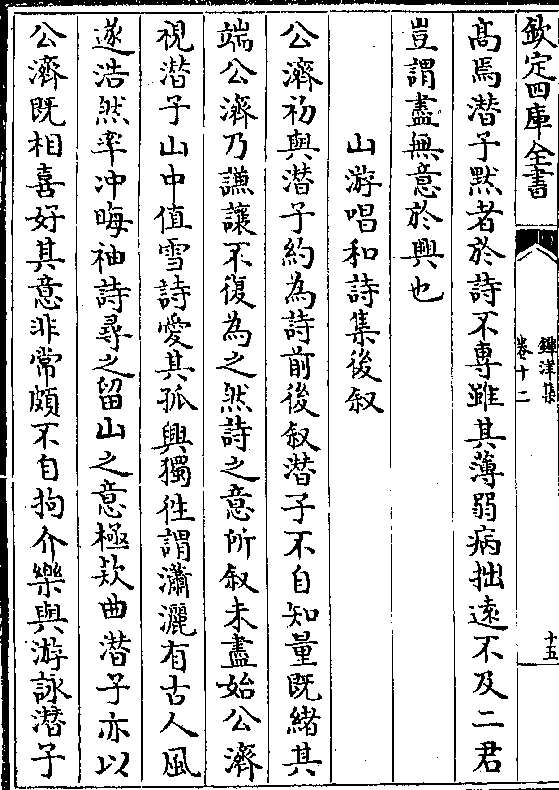 欽定四庫全書
鐔津集
卷十二
十五
高焉潛子黙者於詩不專雖其薄弱病拙逺不及二君
豈謂盡無意於興也
山游唱和詩集後叙
公濟初與潛子約為詩前後叙潛子不自知量既緒其
端公濟乃謙讓不復為之然詩之意所叙未盡始公濟
視潛子山中值雪詩愛其孤興獨徃謂瀟灑有古人風
遂浩然率冲晦袖詩尋之留山之意極欵曲潛子亦以
公濟既相喜好其意非常頗不自拘介樂與游詠潛子